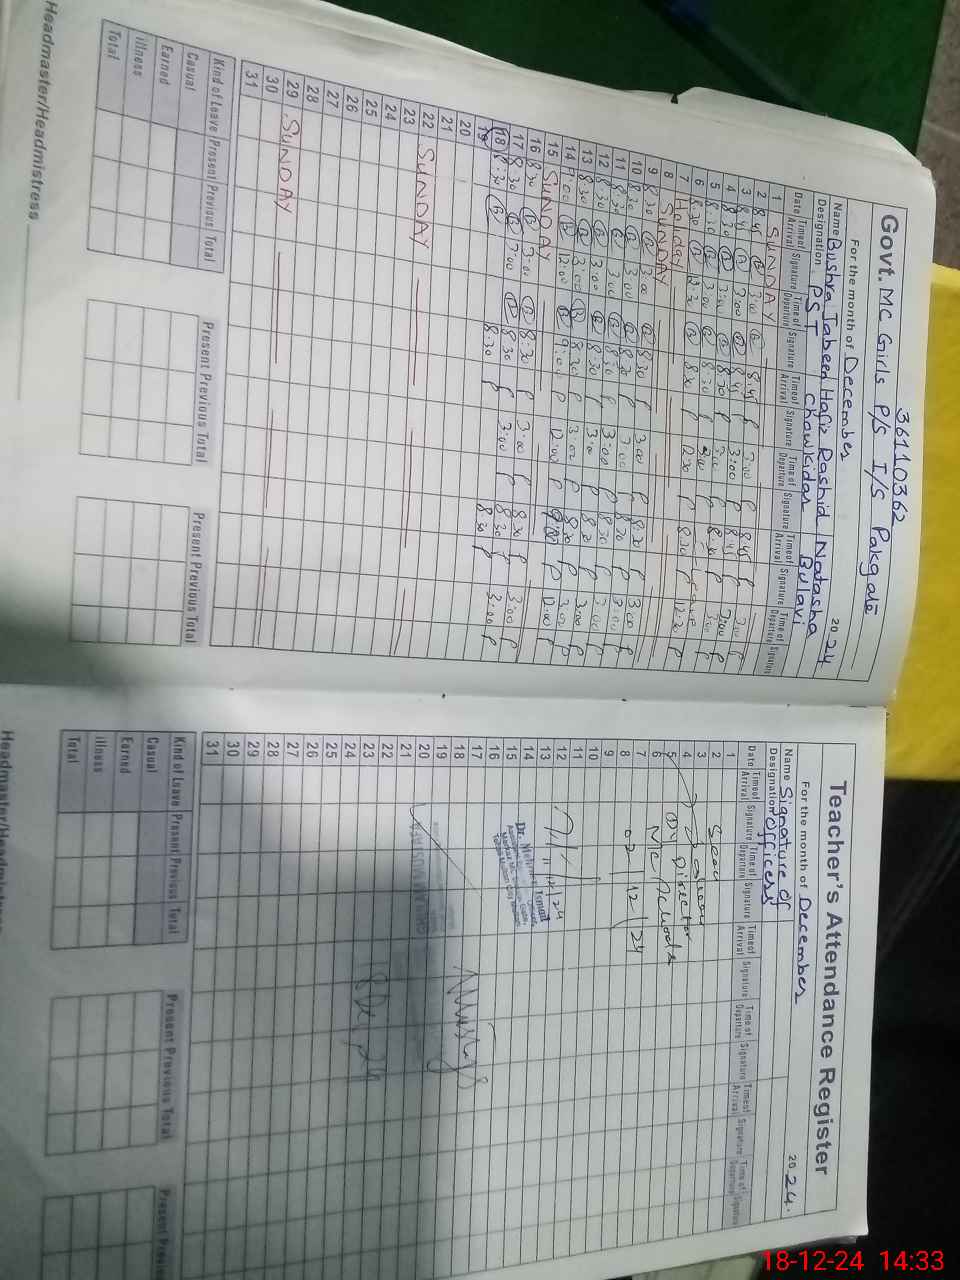 36110362
Govt. MC Girls P/S I/S Pakgate
For the month of December 2024
Name Bushra Jabeen Hafiz Rashid Natasha
Designation PST Chowkidar Bulavi
Date Time of Arrival Signature Time of Departure Signature Time of Arrival Signature Time of Departure Signature Time of Arrival Signature Time of Departure Signature
1 SUNDAY
2 8:45 3:00 8:45 3:00 8:45 3:00
3 8:45 3:00 8:45 3:00 8:45 3:00
4 8:30 3:00 8:30 3:00 8:30 3:00
5 8:30 3:00 8:30 3:00 8:30 3:00
6 8:30 12:30 8:30 12:30 8:30 12:30
7 Holiday
8 SUNDAY
9 8:30 3:00 8:30 3:00 8:30 3:00
10 8:30 3:00 8:30 3:00 8:30 3:00
11 8:30 3:00 8:30 3:00 8:30 3:00
12 8:30 3:00 8:30 3:00 8:30 3:00
13 8:30 3:00 8:30 3:00 8:30 3:00
14 9:00 12:00 9:00 12:00 9:00 12:00
15 SUNDAY
16 8:30 3:00 8:30 3:00 8:30 3:00
17 8:30 3:00 8:30 3:00 8:30 3:00
18 8:30 8:30 8:30 3:00
19
20
21
22 SUNDAY
23
24
25
26
27
28
29 SUNDAY
30
31
Kind of Leave Present Previous Total Present Previous Total Present Previous Total
Casual
Earned
illness
Total
Headmaster/Headmistress
Teacher's Attendance Register
For the month of December 2024.
Name Signature of
Designation Officers
Date Time of Arrival Signature Time of Departure Signature Time of Arrival Signature Time of Departure Signature Time of Arrival Signature Time of Departure Signature
1
2 Seen
3
4
5 Dy Director
6 M/C Schools
7
8 02/12/24
9
10
11
12 11/12/24
13
14
15
16
17
18
19
20
21
22
23 18/12/24
24
25
26
27
28
29
30
31
Kind of Leave Present Previous Total Present Previous Total
Casual
Earned
illness
Total
Headmaster/Headmistress
18-12-24 14:33